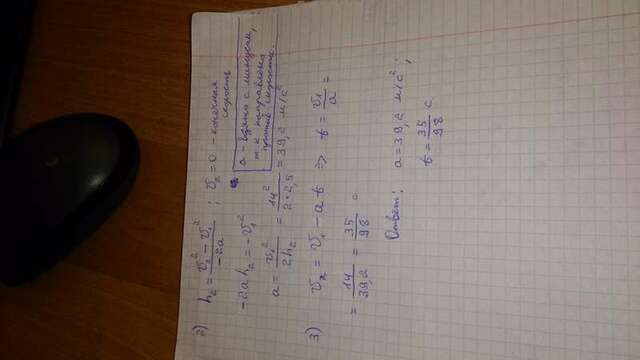 2) h₂ = (v₂² - v₁²) / (-2a) ; v₂ = 0 - конечная
скорость
-2a h₂ = -v₁²
a - взято с минусом,
т.к направлена
против скорости.
a = v₁² / 2h₂ = 14² / (2*2,5) = 39,2 м/с²
3) vₓ = v₁ - a t => t = v₁ / a =
= 14 / 39,2 = 35 / 98 с
Ответ: a = 39,2 м/с² ;
t = 35 / 98 с